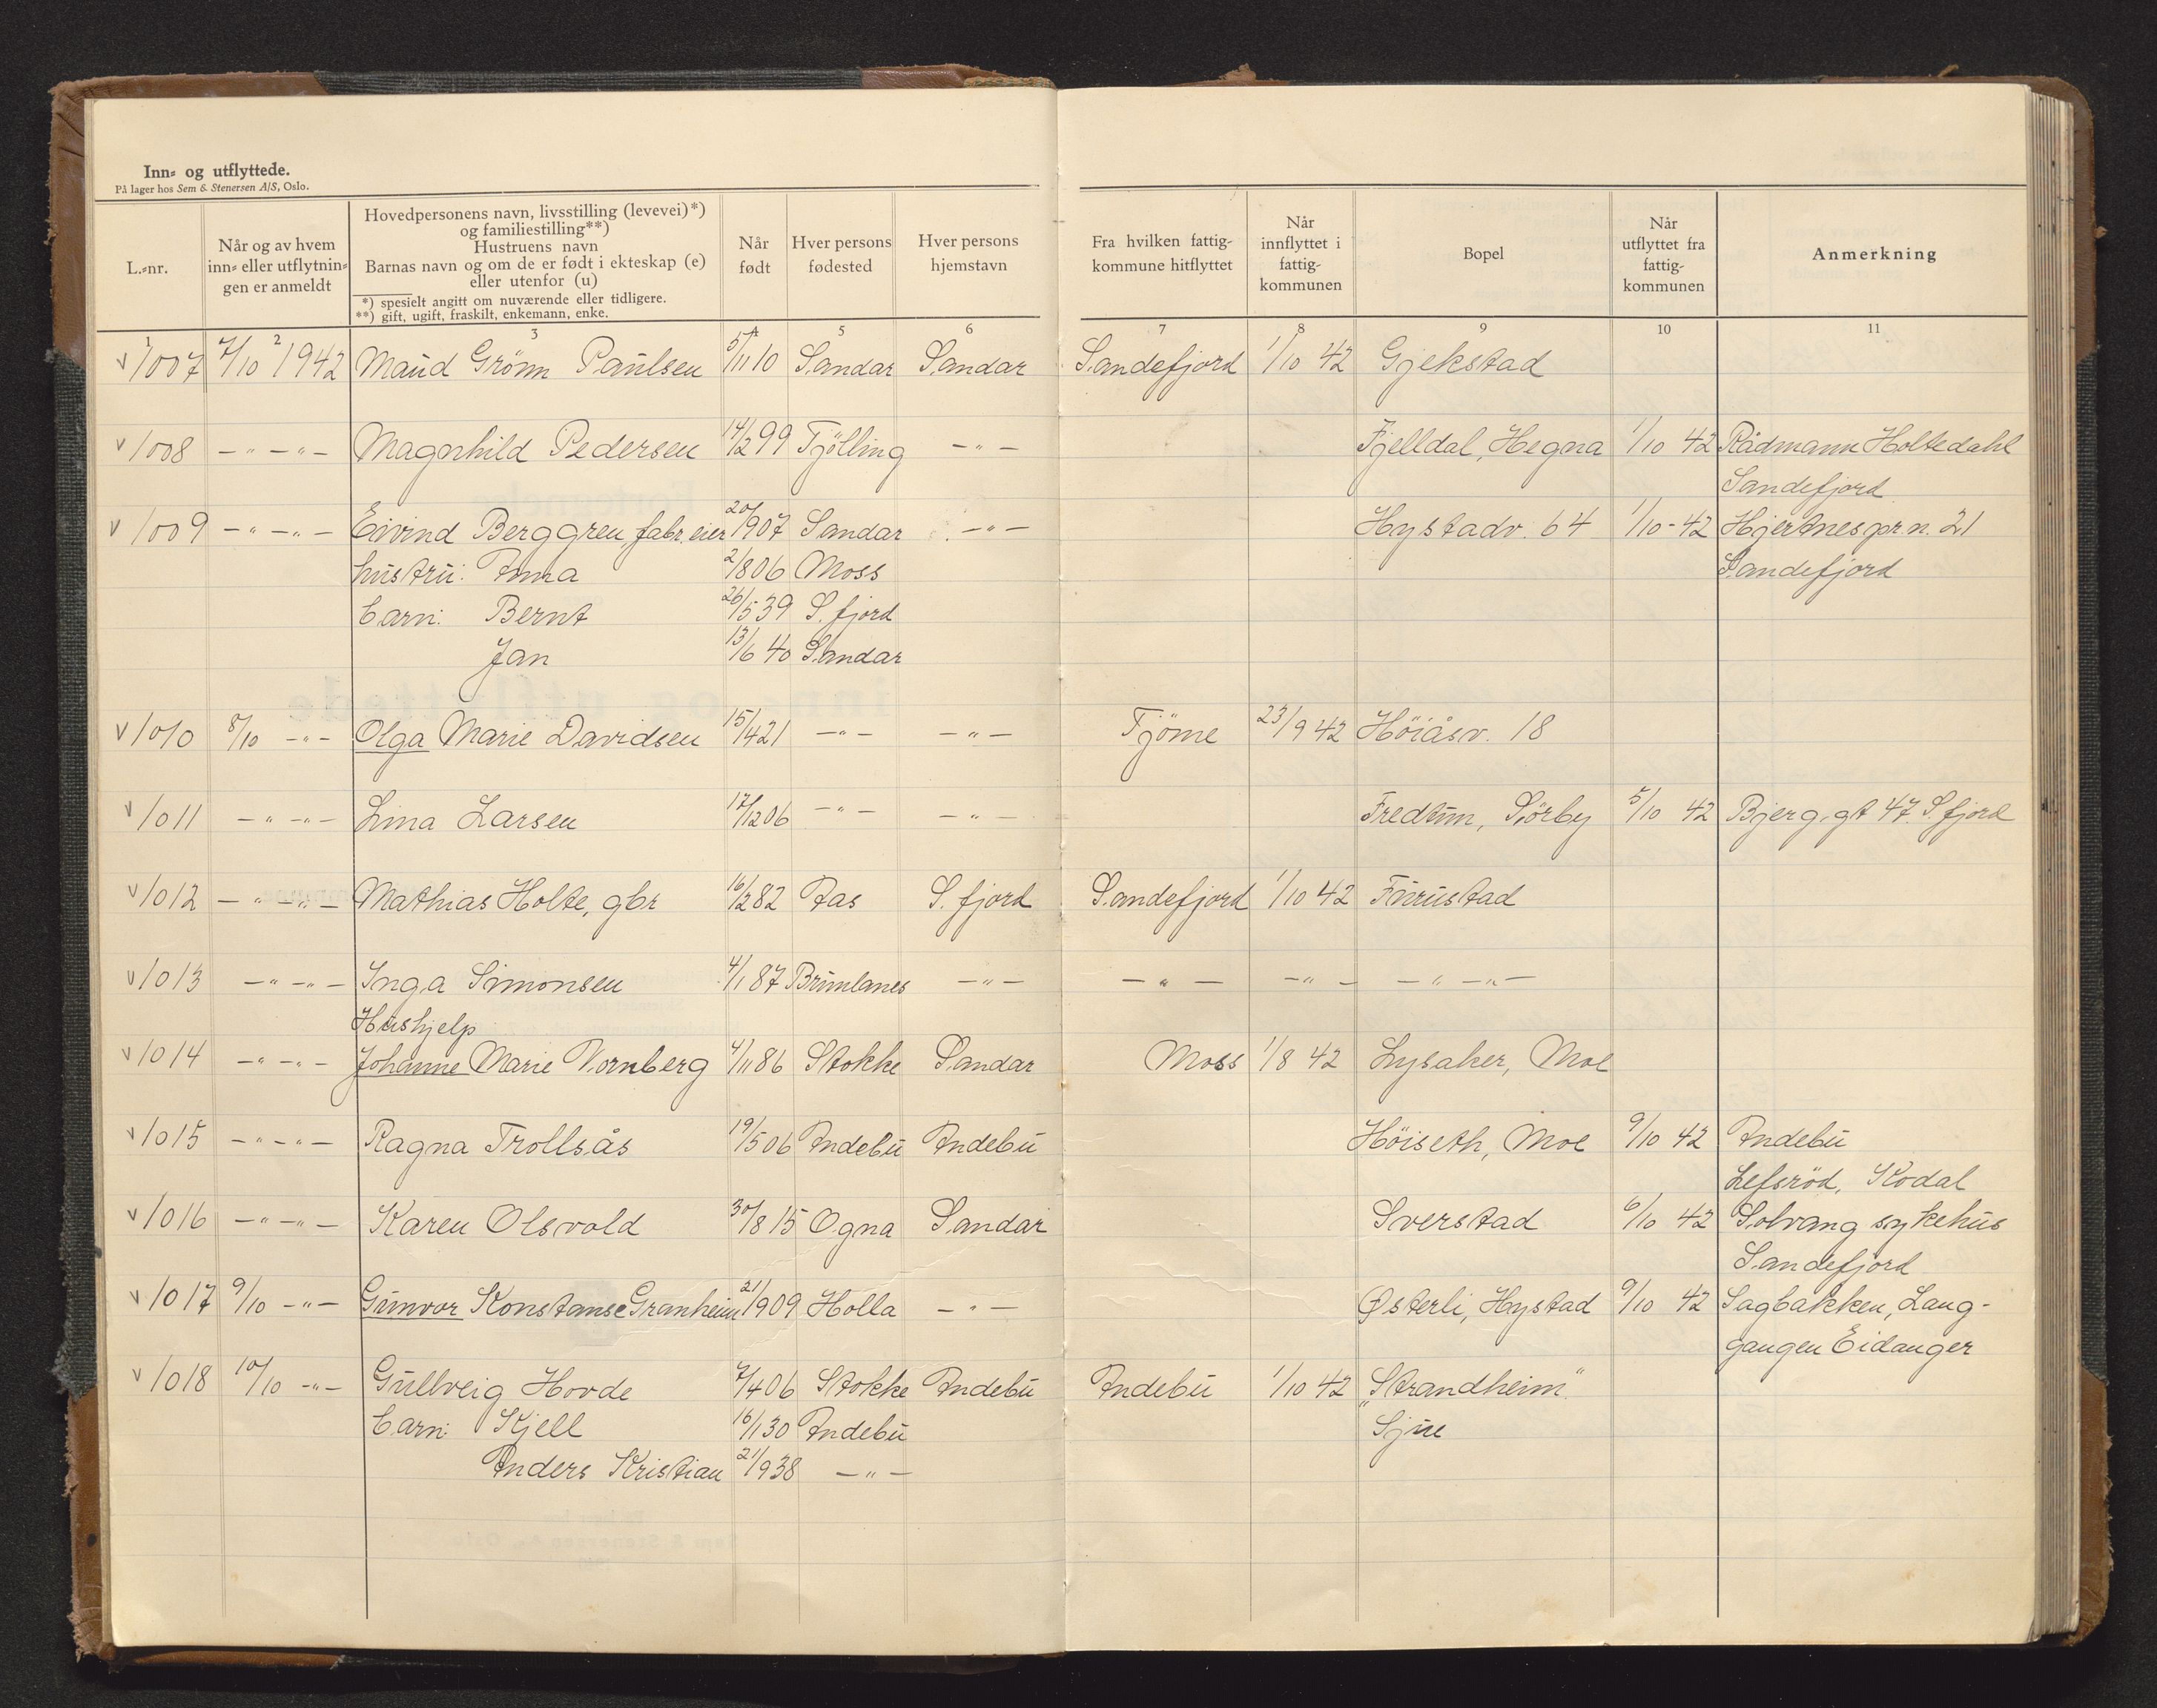 Inn- og utflyttede.
På lager hos Sem & Stenersen A/S, Oslo.
L.-nr.
Når og av hvem inn- eller utflytnin-gen er anmeldt
Hovedpersonens navn, livsstilling (levevei)*)
og familiestilling**)
Hustruens navn
Barnas navn og om de er født i ekteskap (e)
eller utenfor (u)
*) spesielt angitt om nuværende eller tidligere.
**) gift, ugift, fraskilt, enkemann, enke.
Når født
Hver persons fødested
Hver persons hjemstavn
Fra hvilken fattig-kommune hitflyttet
Når innflyttet i fattig-kommunen
Bopel
Når utflyttet fra fattig-kommunen
Anmerkning
1 2 3 4 5 6 7 8 9 10 11
v 1007 7/10 1942 Maud Grönn Paulsen 5/11 10 Sandar Sandar Sandefjord 1/10 42 Gjekstad
v 1008 -"- -"- Magnhild Pedersen 14/2 99 Tjölling -"- Fjelldal, Hegna 1/10 42 Rådmann Holtedahl
Sandefjord
v 1009 -"- -"- Eivind Berggren, fabr. eier 20/9 07 Sandar -"- Hystadv. 64 1/10-42 Hjertnespr. n. 21
hustru: Anna 2/8 06 Moss Sandefjord
barn: Bernt 26/5 39 S.fjord
Jan 13/6 40 Sandar
v 1010 8/10 -"- Olga Marie Davidsen 15/4 21 -"- -"- Tjöme 23/9 42 Höiåsv. 18
v 1011 -"- -"- Lina Larsen 17/12 06 -"- -"- Fredtun, Sörby 5/10 42 Bjerg.gt 47. S.fjord
v 1012 -"- -"- Mathias Holte, gbr 16/2 82 Aas S.fjord Sandefjord 1/10 42 Furustad
v 1013 -"- -"- Inga Simonsen 4/1 87 Brunlanes -"- -"- -"- -"- -"-
Hushjelp
v 1014 -"- -"- Johanne Marie Vornberg 4/11 86 Stokke Sandar Moss 1/8 42 Lysaker, Moe
v 1015 -"- -"- Ragna Trollsås 19/5 06 Andebu Andebu Höiseth, Moe 9/10 42 Andebu
Lefsröd, Kodal
v 1016 -"- -"- Karen Olsvold 30/8 15 Ogna Sandar Sverstad 6/10 42 Solvang sykehus
Sandefjord
v 1017 9/10 -"- Gunvor Konstanse Granheim 21/9 09 Holla -"- Østerli, Hystad 9/10 42 Sagbakken, Lang-
gangen Eidanger
v 1018 10/10 -"- Gullveig Hovde 7/4 06 Stokke Andebu Andebu 1/10 42 "Strandheim"
barn: Kjell 16/1 30 Andebu Sjue
Anders Kristian 21/9 38 -"-